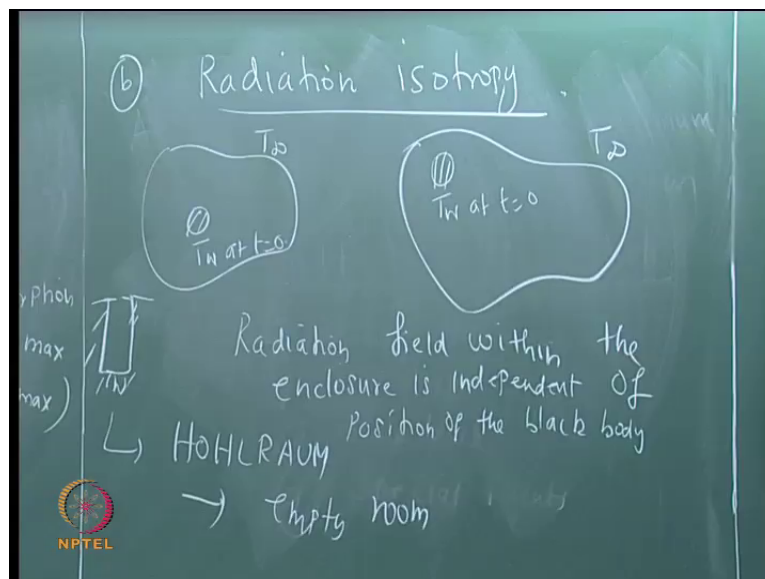 (b) Radiation isotropy.
T∞
T∞
Tw at t=0.
Tw at t=0
phon
max
max)
Tw
Radiation field within the
enclosure is independent of
Position of the black body
↳ HOHLRAUM
→ empty room
NPTEL